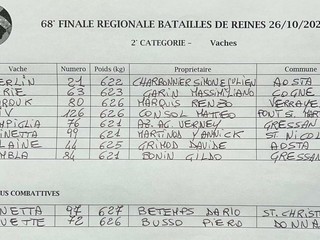 68ª FINALE REGIONALE BATAILLES DE REINES 26/10/202
2ª CATEGORIE - Vaches
Vache Numero Peso (kg) Proprietario Commune
ERLIN 21 622 CHARBONNIER SIMONE JULIEN AOSTA
RIE 63 623 GARIN MASSIMILIANO COGNE
ROUK 80 626 MARQUIS RENZO VERRAYE
IV 126 626 CONSOL MATTEO PONT S. MART
MPIGLIA 76 621 AZ. AG. VERNEY GRESSAN
INETTA 99 621 MARTINOD YANNICK ST NICOL
LAINE 44 625 GRIMOD DAVIDE AOSTA
MBLA 84 621 BONIN GILDO GRESSAN
US COMBATTIVES
NETTA 97 627 BETEMPS DARIO ST. CHRIST
UETTE 72 626 BUSSO PIERO DONNA